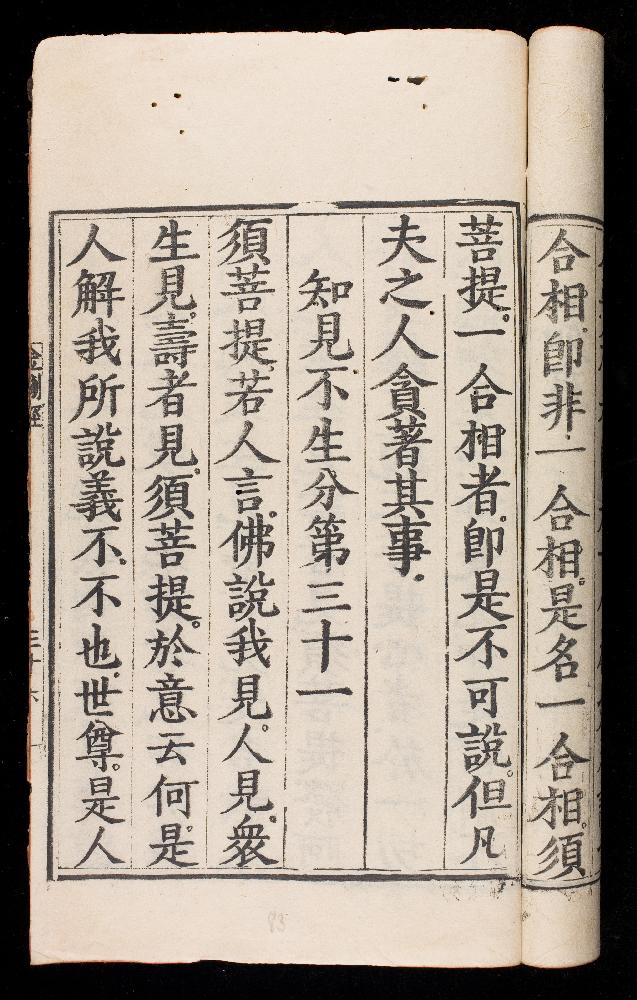 合相。即非一合相。是名一合相。須
菩提。一合相者。即是不可說。但凡
夫之人貪著其事。
知見不生分第三十一
須菩提。若人言。佛說我見。人見。衆
生見。壽者見。須菩提。於意云何。是
人解我所說義不。不也。世尊。是人
金剛經
三十六
83